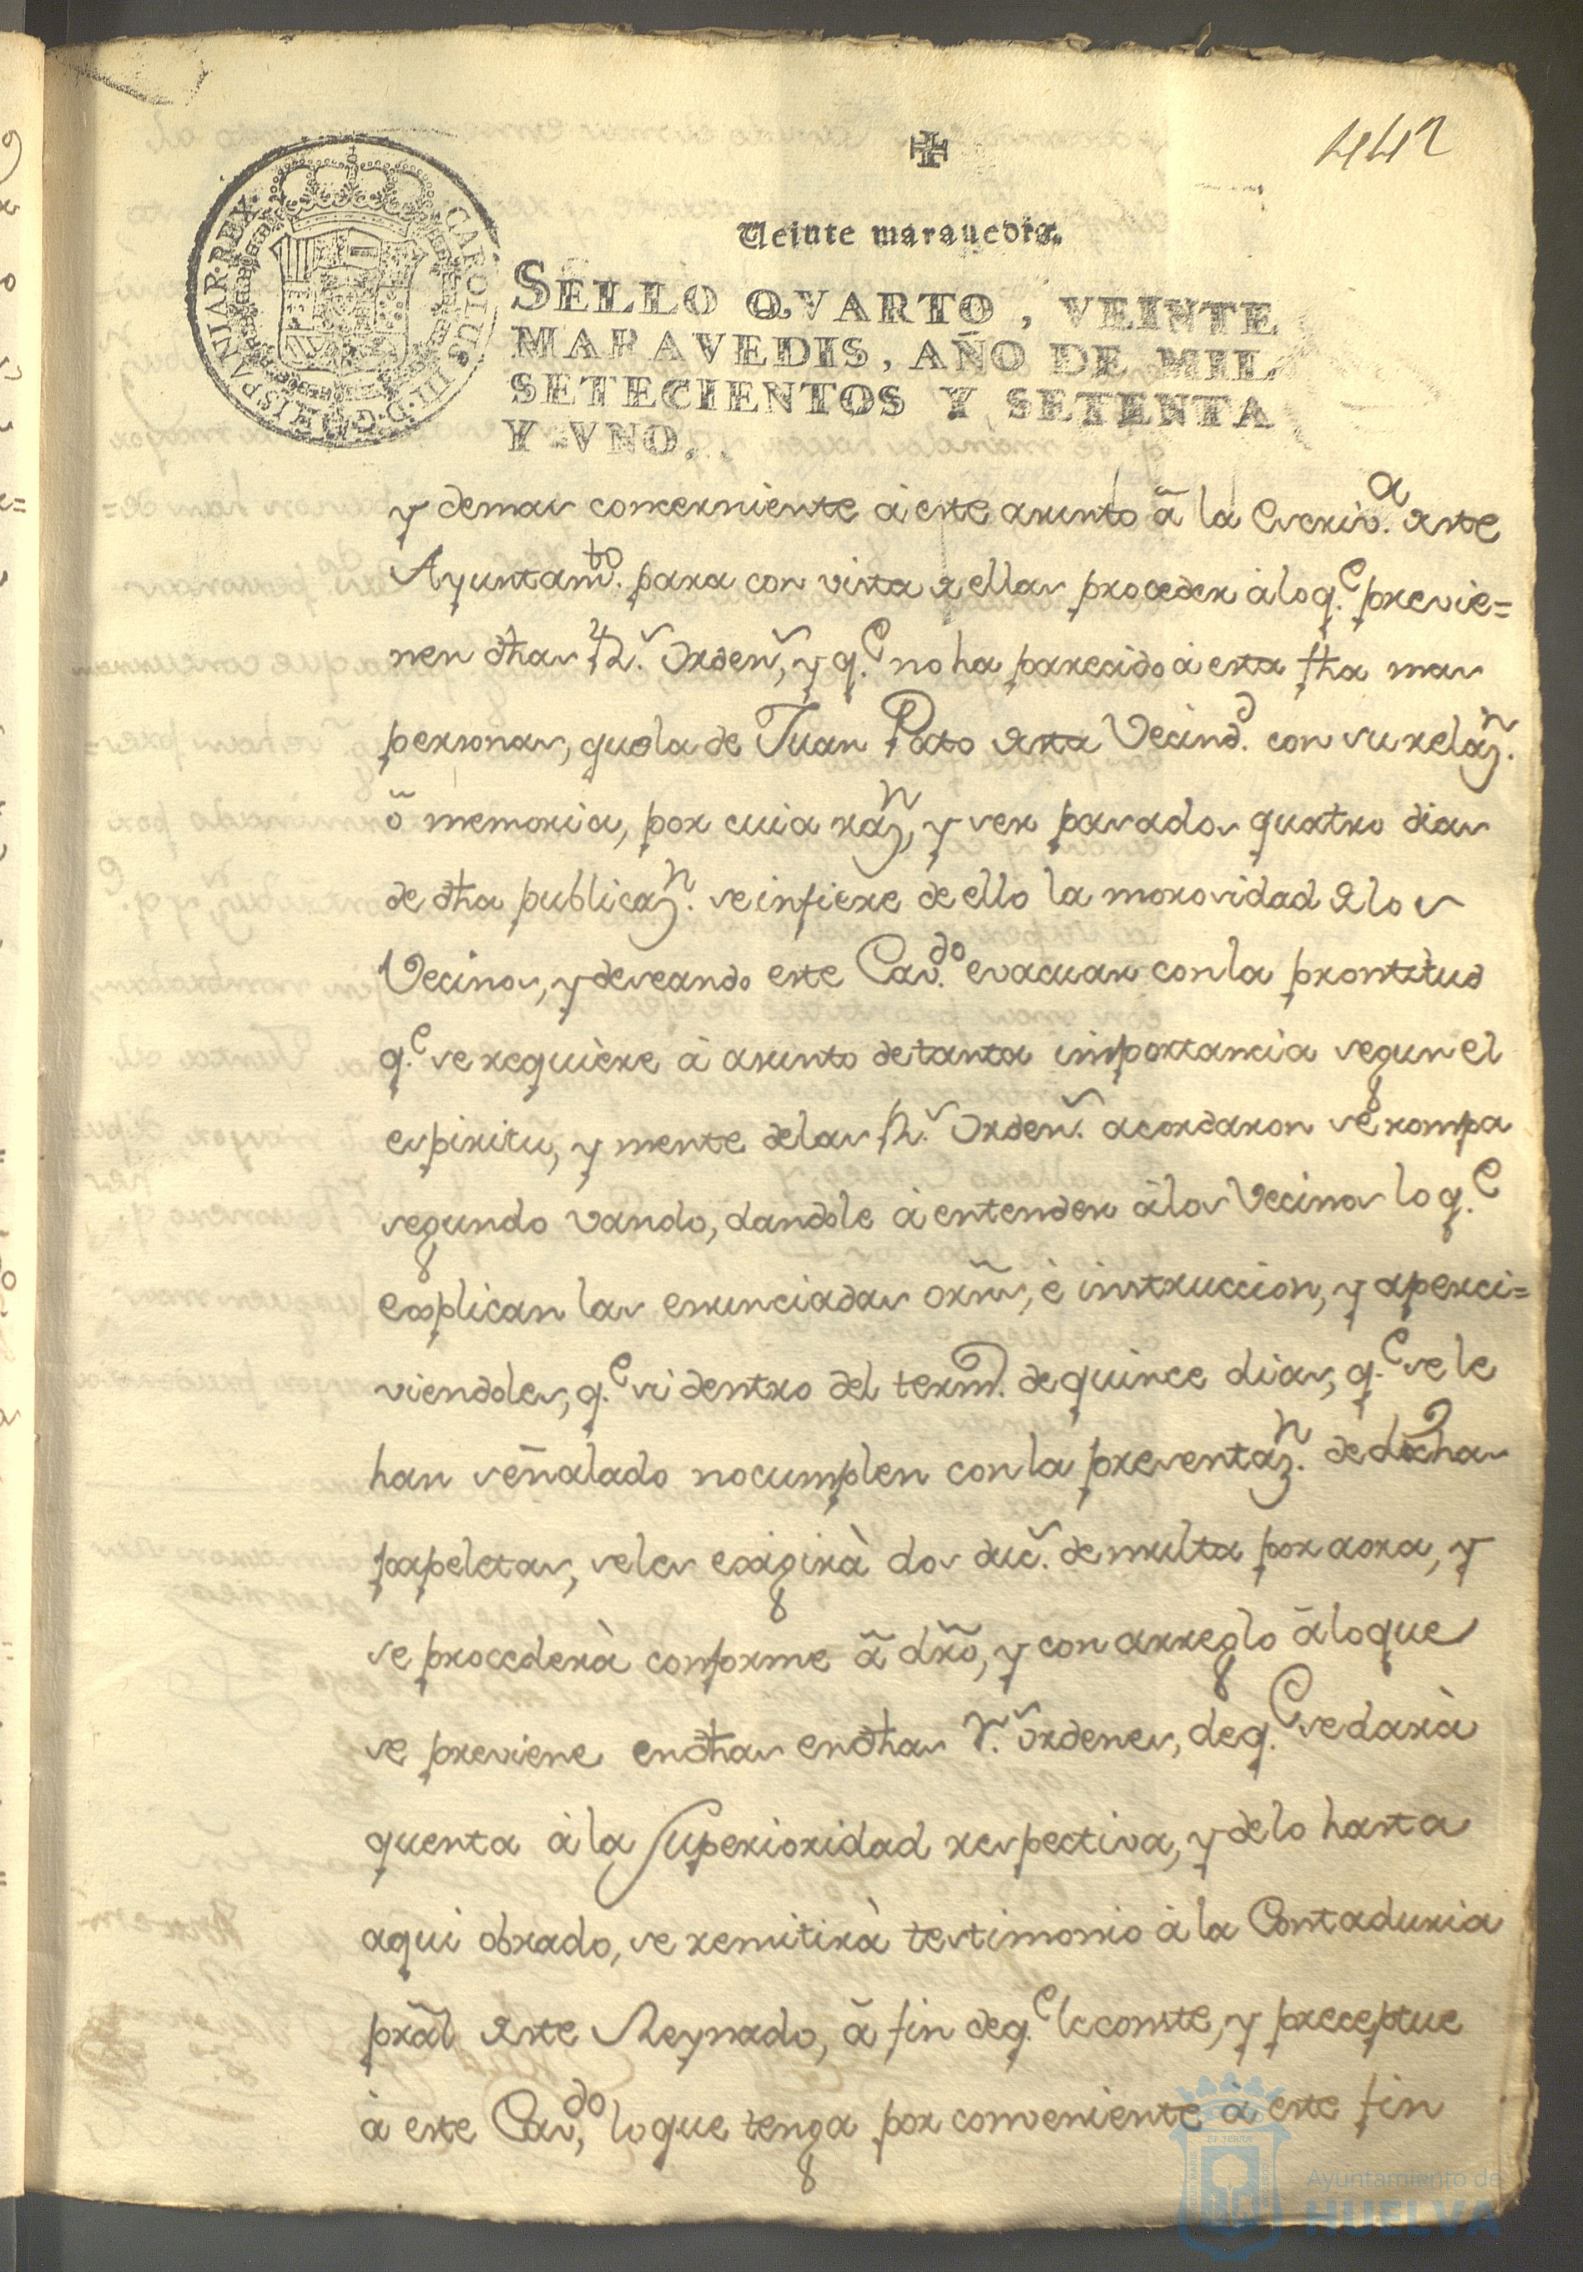 442
Veinte maravedis.
CAROLUS III. D. G. HISPANIAR. REX.
SELLO QVARTO, VEINTE
MARAVEDIS, AÑO DE MIL
SETECIENTOS Y SETENTA
Y VNO.
y demas concerniente à este asunto ã la Escriv.ª deste
Ayuntam.to para con vista de ellas proceder à lo q.e previe=
nen dhas Rs. Ordens, y q.e no ha parecido à esta fha mas
personas, que la de Juan Pato desta Vecind.d con su relazn.
õ memoria, por cuia razn, y ser pasados quatro dias
de dha publicazn. se infiere de ello la morosidad de los
Vecinos, y deseando este Cav.do evacuar con la prontitud
q.e se requière à asunto de tanta importancia segun el
espiritu, y mente de las Rs. Ordens. acordaron se rompa
segundo vando, dandole à entender à los Vecinos lo q.e
explican las enunciadas orñs, è instruccion, y aperci=
viendoles, q.e si dentro del term.o de quince dias, q.e se le
han señalado no cumplen con la presentazn. de dichas
papeletas, seles exigirà dos ducs. de multa por aora, y
se procederà conforme ã dr̃o, y con arreglo ã lo que
se previene en dhas en dhas Rs. ordenes, de q.e se darà
quenta à la Superioridad respectiva, y de lo hasta
aqui obrado, se remitirà testimonio à la Contaduria
prãl deste Reynado, ã fin de q.e le conste, y preceptue
à este Cav.do, lo que tenga por conveniente à este fin
Ayuntamiento de
HUELVA